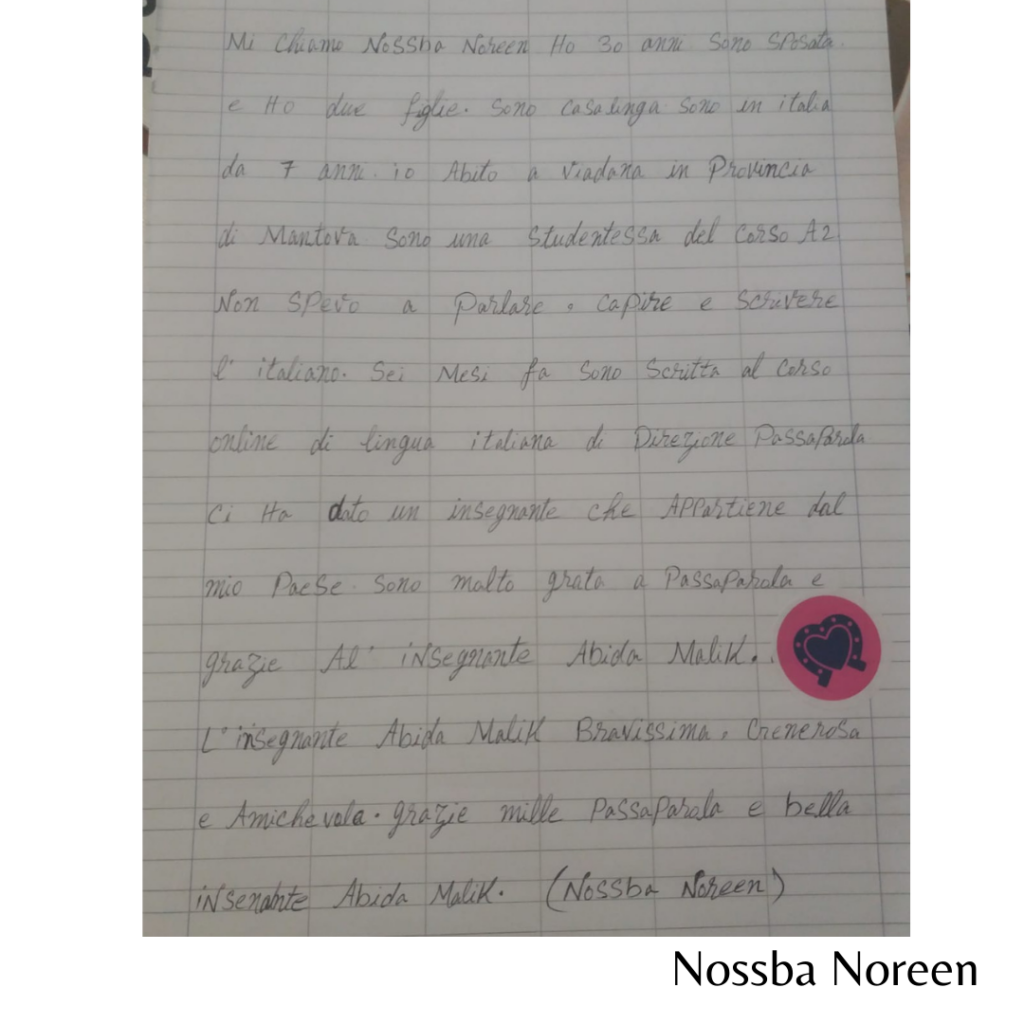 Mi Chiamo Nossba Noreen Ho 30 anni Sono Sposata
e Ho due figlie. Sono Casalinga Sono in italia
da 7 anni. io Abito a Viadana in Provincia
di Mantova Sono una Studentessa del Corso A2
Non SPevo a Parlare, Capire e Scrivere
l' italiano. Sei Mesi fa Sono Scritta al Corso
online di lingua italiana di Direzione PassaParola
Ci Ha dato un insegnante che APPartiene dal
mio Paese. Sono malto grata a PassaParola e
grazie Al' iNSegnante Abida Malik.
L'insegnante Abida Malik Bravissima, Generosa
e Amichevola. grazie mille PassaParola e bella
iNSenabte Abida Malik. (Nossba Noreen)
Nossba Noreen